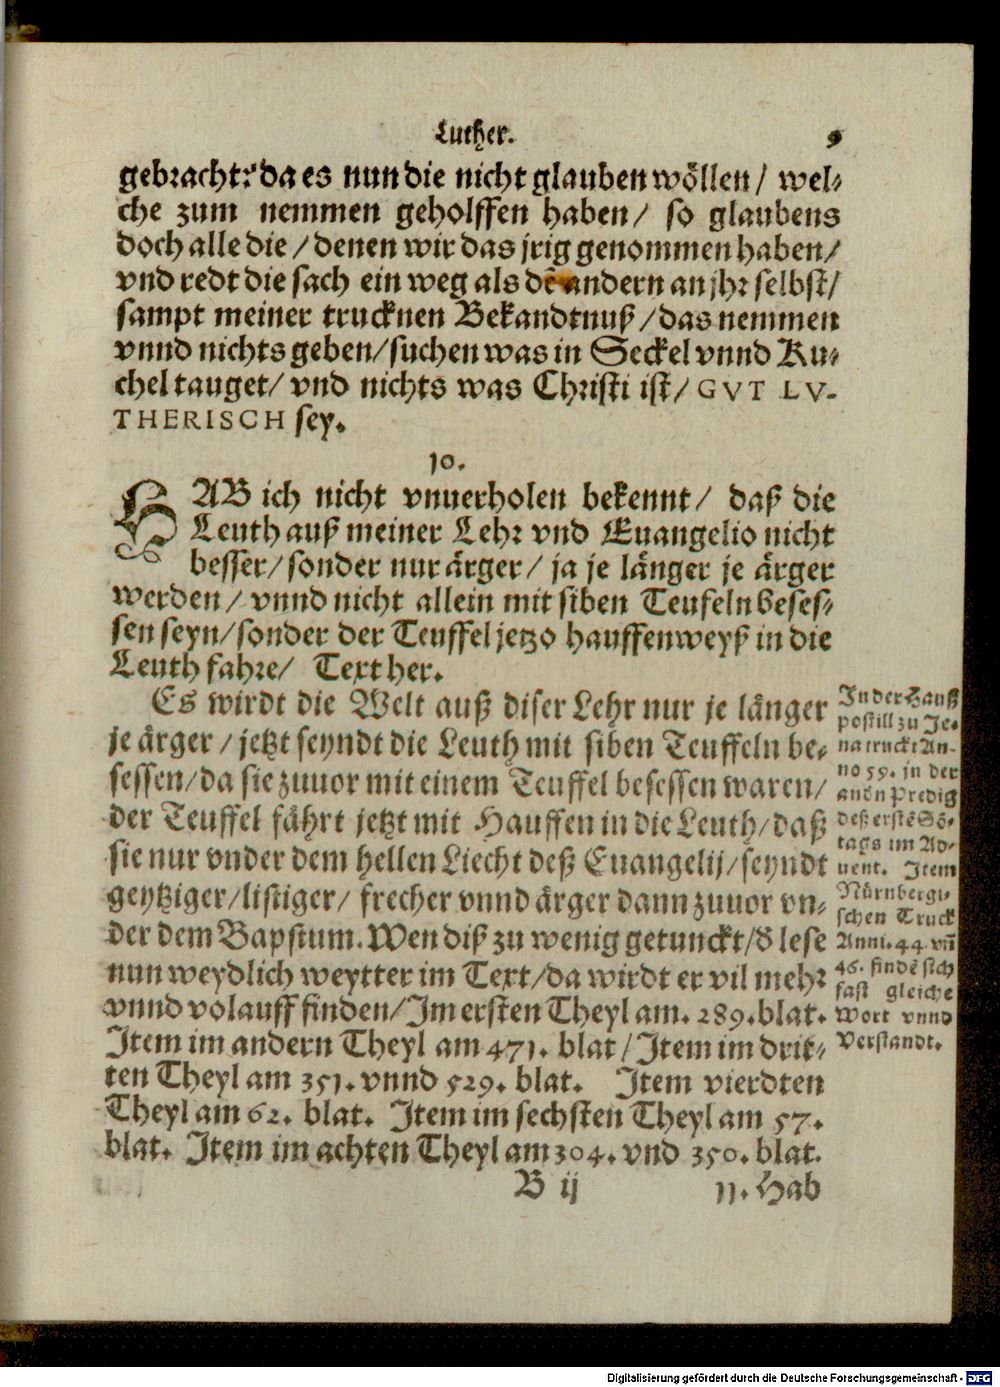 Luther. 9
gebracht? da es nun die nicht glauben wöllen / wel-
che zum nemmen geholffen haben / so glaubens
doch alle die / denen wir das jrig genommen haben /
vnd redt die sach ein weg als dẽ andern an jhr selbst /
sampt meiner trucknen Bekandtnuß / das nemmen
vnnd nichts geben / suchen was in Seckel vnnd Ku-
chel tauget / vnd nichts was Christi ist / GVT LV-
THERISCH sey.
10.
HAB ich nicht vnuerholen bekennt / daß die
Leuth auß meiner Lehr vnd Euangelio nicht
besser / sonder nur ärger / ja je länger je ärger
werden / vnnd nicht allein mit siben Teufeln beses-
sen seyn / sonder der Teuffel jetzo hauffenweyß in die
Leuth fahre / Text her.
Es wirdt die Welt auß diser Lehr nur je länger
je ärger / jetzt seyndt die Leuth mit siben Teuffeln be-
sessen / da sie zuuor mit einem Teuffel besessen waren /
der Teuffel fährt jetzt mit Hauffen in die Leuth / daß
sie nur vnder dem hellen Liecht deß Euangelij / seyndt
geytziger / listiger / frecher vnnd ärger dann zuuor vn-
der dem Bapstum. Wen diß zu wenig getunckt / d̃ lese
nun weydlich weytter im Text / da wirdt er vil mehr
vnnd volauff finden / Im ersten Theyl am. 289. blat.
Item im andern Theyl am 471. blat / Item im drit-
ten Theyl am 351. vnnd 529. blat. Item vierdten
Theyl am 62. blat. Item im sechsten Theyl am 57.
blat. Item im achten Theyl am 304. vnd 350. blat.
In der Hauß
postill zu Je-
na truckt An-
no 59. in der
andẽn Predig
deß erstẽ Sõ-
tags im Ad-
uent. Item
Nürnbergi-
schen Truck
Anni. 44. vñ
46. findẽ sich
fast gleiche
Wort vnnd
Verstandt.
B ij 11. Hab
Digitalisierung gefördert durch die Deutsche Forschungsgemeinschaft - DFG